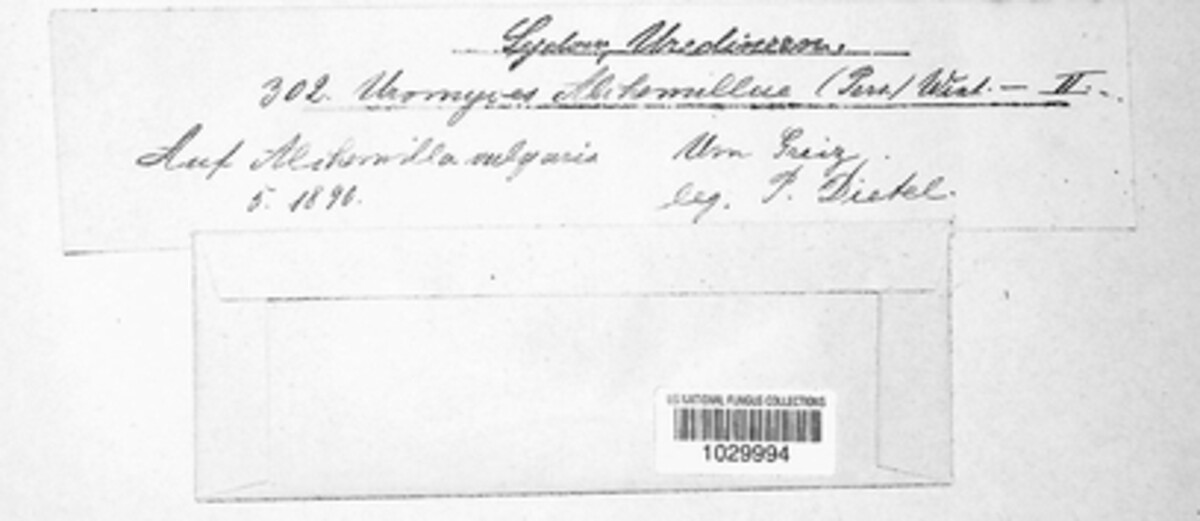 Sydow, Uredineen.
302. Uromyces Alchemillae (Pers.) Wint. — II.
Auf Alchemilla vulgaris
5. 1896.
Um Greiz.
leg. P. Dietel.
US NATIONAL FUNGUS COLLECTIONS
1029994